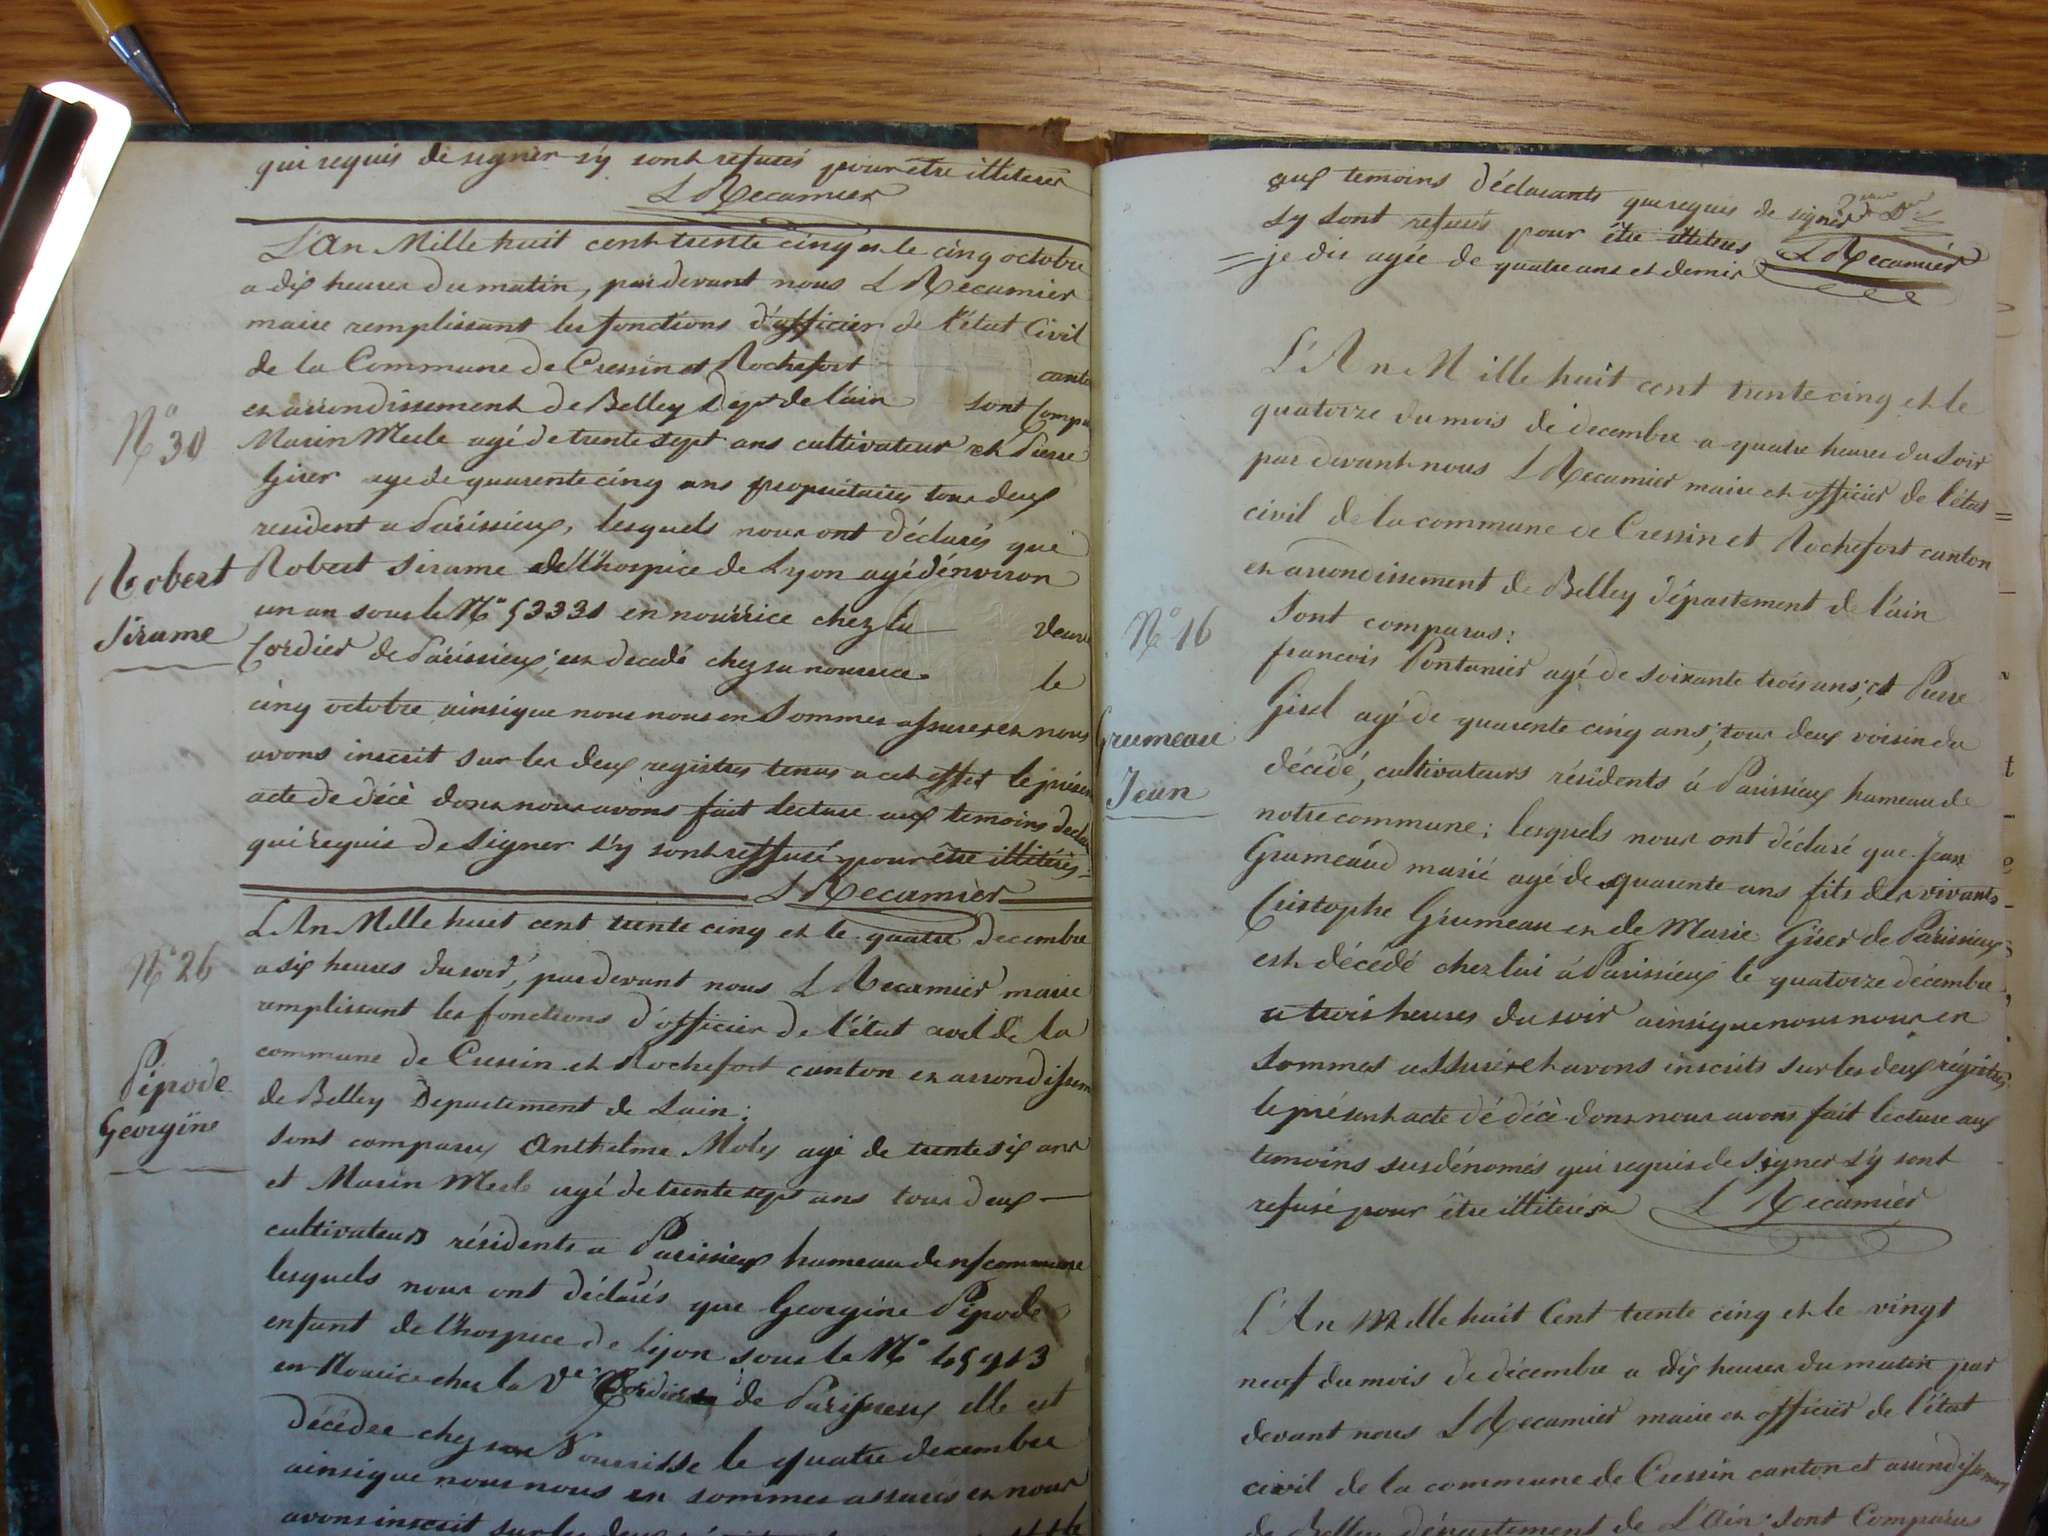 qui requis de signer s'y sont refusés pour être illiterés
L Recamier
L'An Mille huit cent trente cinq et le cinq octobre
a dix heures du matin, par devant nous L Recamier
maire remplissant les fonctions d'officier de l'état Civil
de la Commune de Cressin et Rochefort canto
et arrondissement de Belley Dept de l'ain sont Compa
Marin Merle agé de trente sept ans cultivateur et Pierre
Giser age de quarente cinq ans propriétaires tous deux
resident a Parissieux, lesquels nous ont déclarés que
Robert Sirame de l'hospice de Lyon agé d'environ
un an sous le No 53331 en nourrice chez la veuve
Cordier de Parissieux; est decedé chez sa nourrice le
cinq octobre ainsi que nous nous en sommes assurer et nous
avons inscrit sur les deux registres tenus a cet effet le présen
acte de décè dont nous avons fait lecture aux temoins decla
qui requis de signer s'y sont reffusé pour être illitérés
L Recamier
No 30
Robert
Sirame
L'An Mille huit cent trente cinq et le quatre decembre
a six heures du soir, par devant nous L Recamier maire
remplissant les fonctions d'officier de l'état civil de la
commune de Cressin et Rochefort canton et arrondissem
de Belley Departement de Lain;
sont comparus Anthelme Moley agé de trente six ans
et Marin Merle agé de trente sept ans tous deux
cultivateurs résidents a Parissieux hameau de n/ commune
lesquels nous ont déclarés que Georgine Pipode
enfant de l'hospice de Lyon sous le No 45913
en Nourice chez la Ve Cordier de Parissieux elle est
décédee chez sa Nourisse le quatre decembre
ainsi que nous nous en sommes assurés et nous
avons inscrit sur les deux
No 26
Pipode
Georgine
aux temoins déclarants que requis de signer
s'y sont refusés pour être illiteres L Recamier
= je dis agée de quatre ans et demie
L'An Mille huit cent trente cinq et le
quatorze du mois de decembre a quatre heures du soir
par devant nous L Recamier maire et officier de l'état
civil de la commune de Cressin et Rochefort canton
et arrondissement de Belley département de l'ain
Sont comparus:
francois Pontanier agé de soixante trois ans, et Pierre
Gisel agé de quarente cinq ans, tous deux voisin du
décédé, cultivateurs résidents á Parissieux hameau de
notre commune; lesquels nous ont déclaré que Jean
Grumeaud marié agé de quarente ans fils des vivants
Cristophe Grumeau et de Marie Giser de Parissieux
est décédé chez lui á Parissieux le quatorze décembre
a trois heures du soir ainsi que nous nous en
sommes assuré et avons inscrits sur les deux régistres
le présent acte de décè dont nous avons fait lecture aux
temoins susdénomés qui requis de signer s'y sont
refusé pour être illiterés L Récamier
No 16
Grumeau
Jean
L'An Mille huit Cent trente cinq et le vingt
neuf du mois de décembre a dix heures du matin par
devant nous L Recamier maire et officier de l'état
civil de la commune de Cressin canton et arrondissement
de Belley département de L'Ain; sont Comparus